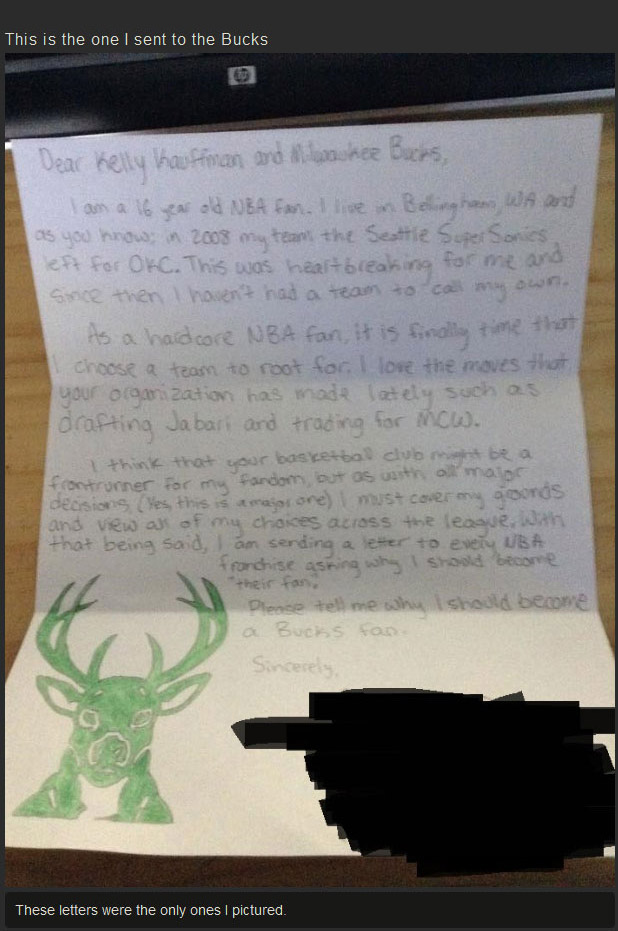 This is the one I sent to the Bucks
hp
Dear Kelly Kauffman and Milwaukee Bucks,
I am a 16 year old NBA fan. I live in Bellingham, WA and
as you know; in 2008 my team the Seattle SuperSonics
left for OKC. This was heartbreaking for me and
since then I haven't had a team to call my own.
As a hardcore NBA fan, it is finally time that
I choose a team to root for. I love the moves that
your organization has made lately such as
drafting Jabari and trading for MCW.
I think that your basketball club might be a
frontrunner for my fandom, but as with all major
decisions, (Yes, this is a major one) I must cover my grounds
and view all of my choices across the league. With
that being said, I am sending a letter to every NBA
franchise asking why I should become
"their fan."
Please tell me why I should become
a Bucks fan.
Sincerely,
These letters were the only ones I pictured.